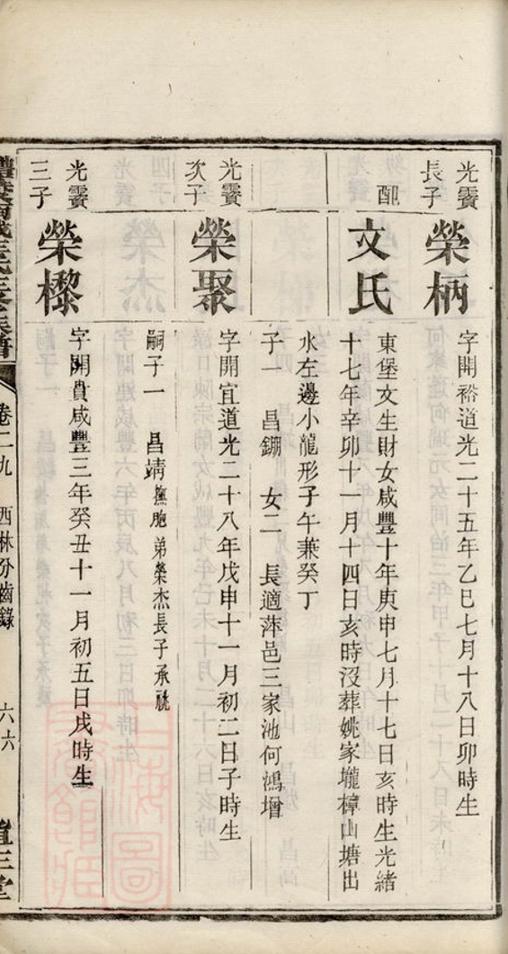 光霙長子
榮柄
字開裕道光二十五年乙巳七月十八日卯時生
配
文氏
東堡文生財女咸豐十年庚申七月十七日亥時生光緒
十七年辛卯十一月十四日亥時沒葬姚家壠樟山塘出
水左邊小龍形子午兼癸丁
子一 昌錋 女二 長適萍邑三家池何鴻增
光霙次子
榮聚
字開宜道光二十八年戊申十一月初二日子時生
嗣子一 昌靖撫胞弟榮杰長子承祧
光霙三子
榮檪
字開貴咸豐三年癸丑十一月初五日戌時生
卷二九 西林分齒錄 六六
三堂
上海圖書館藏